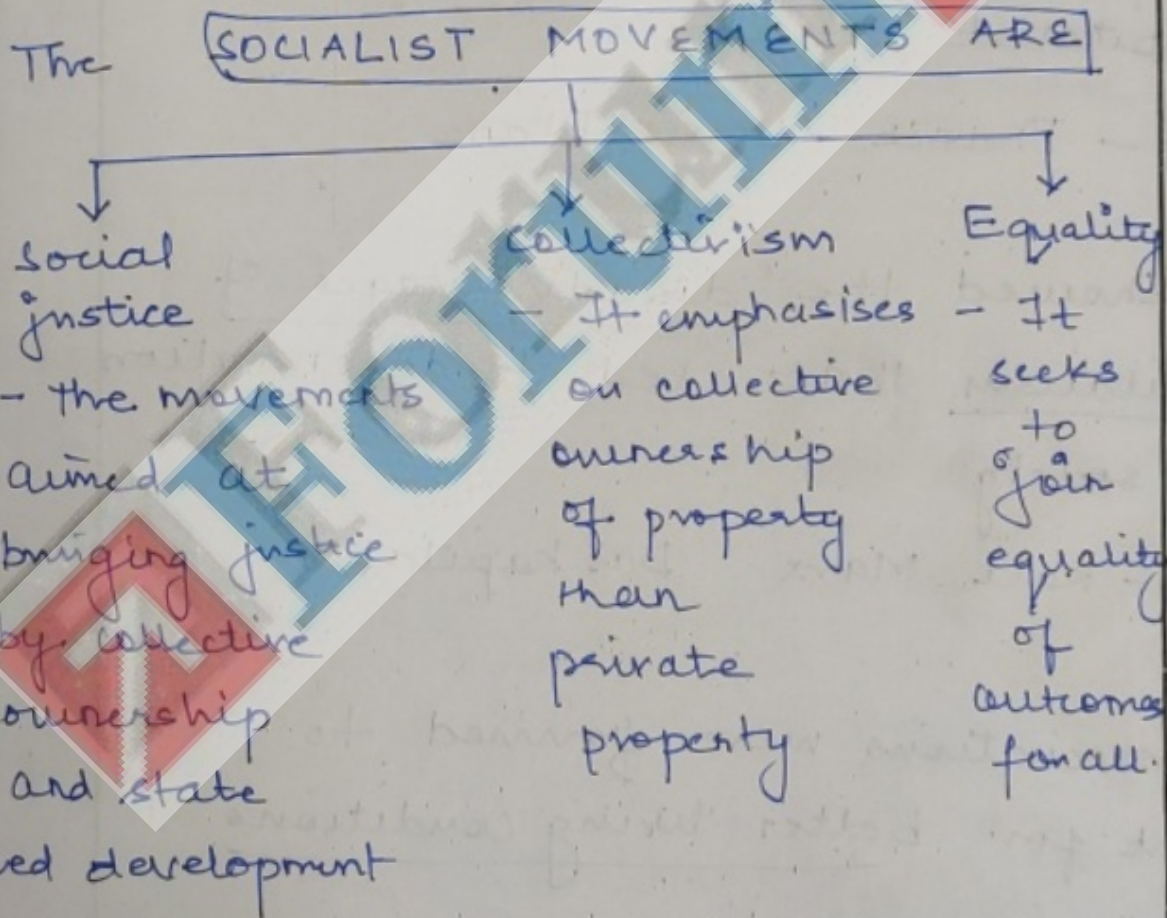 The SOCIALIST MOVEMENTS ARE
social
justice
- the movements
aimed at
bringing justice
by collective
ownership
and state
ed development
collectivism
- It emphasises
on collective
ownership
of property
than
private
property
Equality
- It
seeks
to
join
equality
of
outcomes
for all.
Forum